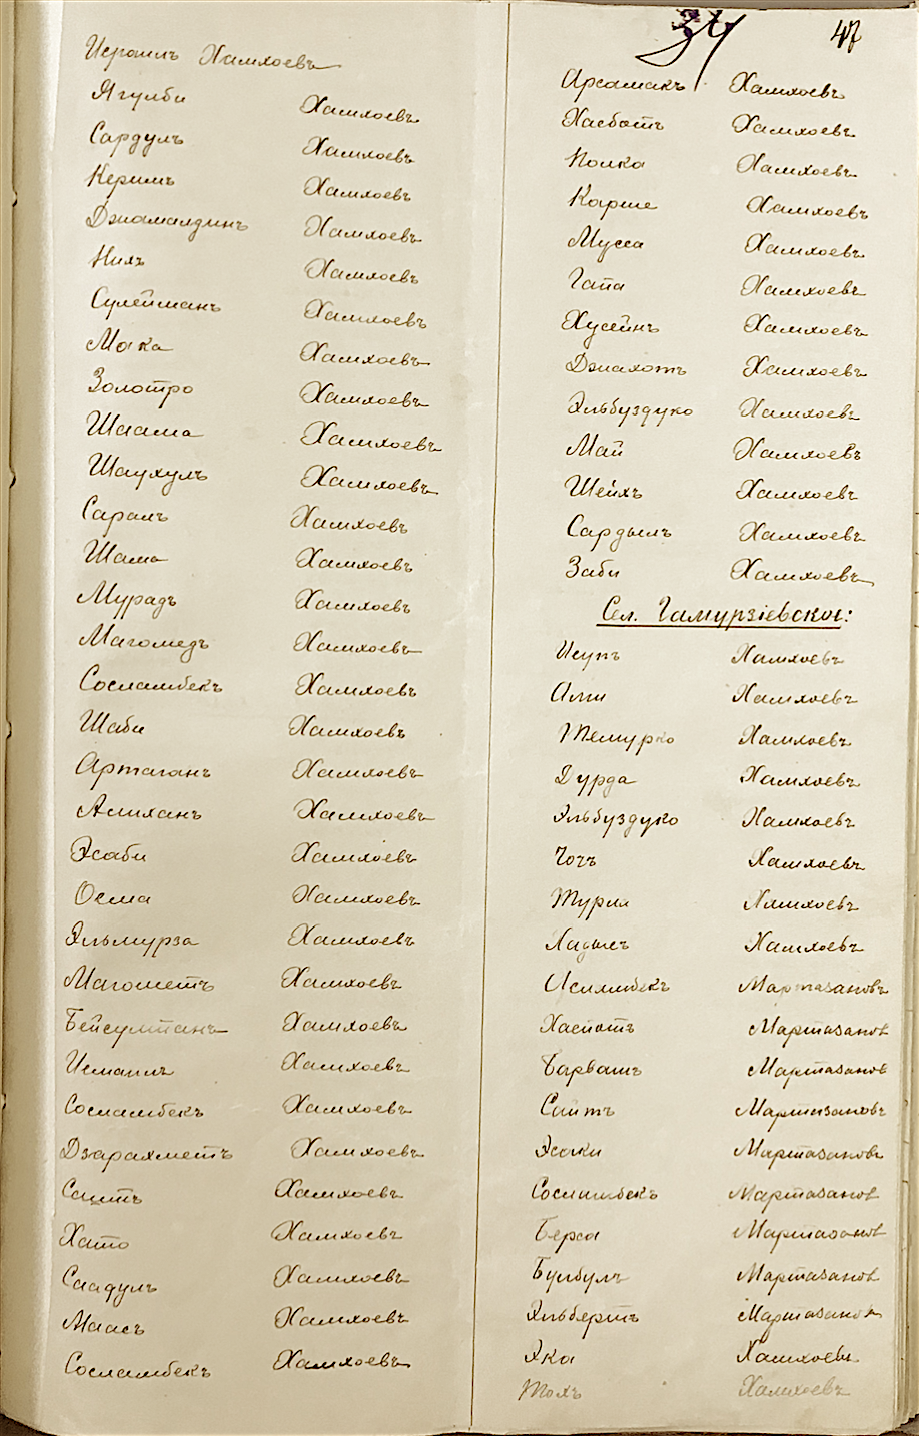 Исраилъ Хамхоевъ
Ягулби Хамхоевъ
Сардулъ Хамхоевъ
Керимъ Хамхоевъ
Джамалдинъ Хамхоевъ
Хамхоевъ
Сулейманъ Хамхоевъ
Мака Хамхоевъ
Золотро Хамхоевъ
Шаама Хамхоевъ
Шаухулъ Хамхоевъ
Саралъ Хамхоевъ
Шама Хамхоевъ
Мурадъ Хамхоевъ
Магомедъ Хамхоевъ
Сосламбекъ Хамхоевъ
Шаби Хамхоевъ
Артаганъ Хамхоевъ
Алиханъ Хамхоевъ
Эсаби Хамхоевъ
Осма Хамхоевъ
Эльмурза Хамхоевъ
Магометъ Хамхоевъ
Бейсултанъ Хамхоевъ
Исмаилъ Хамхоевъ
Сосламбекъ Хамхоевъ
Дзарахметъ Хамхоевъ
Саитъ Хамхоевъ
Хато Хамхоевъ
Саадулъ Хамхоевъ
Маасъ Хамхоевъ
Сосламбекъ Хамхоевъ
34 47
Арсамакъ Хамхоевъ
Хасботъ Хамхоевъ
Хамхоевъ
Карше Хамхоевъ
Мусса Хамхоевъ
Гапа Хамхоевъ
Хусейнъ Хамхоевъ
Джахотъ Хамхоевъ
Эльбуздуко Хамхоевъ
Май Хамхоевъ
Шейхъ Хамхоевъ
Сардылъ Хамхоевъ
Заби Хамхоевъ
Сел. Гамурзіевское:
Исупъ Хамхоевъ
Хамхоевъ
Темурко Хамхоевъ
Дурда Хамхоевъ
Эльбуздуко Хамхоевъ
Чочъ Хамхоевъ
Хамхоевъ
Хамхоевъ
Мартазановъ
Хаспотъ Мартазанов
Мартазанов
Саитъ Мартазановъ
Эсаки Мартазановъ
Сосламбекъ Мартазанов
Берса Мартазанов
Булбулъ Мартазанов
Эльбертъ Мартазанов
Эка Хамхоевъ
Хамхоевъ